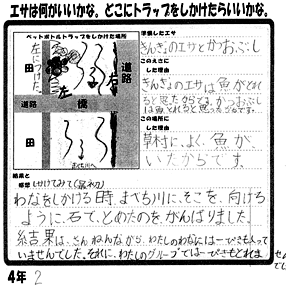 エサは何がいいかな。どこにトラップをしかけたらいいかな。
ペットボトルトラップをしかけた場所
左につけた。
田
道路
左
道路
橋
田
まべち川へ
準備したエサ
きんぎょのエサとかつおぶし
このえさに
した理由
きんぎょのエサは魚がとれ
ると思ったからです。かつおぶし
は魚がとれると思ったからです。
この場所に
した理由
草村に、よく、魚が、
いたからです。
結果と
感想
しかけてみて(最初)
わなをしかける時、まべち川に、そこを、向ける
ように、石で、とめたのを、がんばりました。
結果は、ざんねんながら、わたしのわなには一ぴきも入って
いませんでした。それに、わたしのグループでは一ぴきもとれま
せん
でし
4年 2